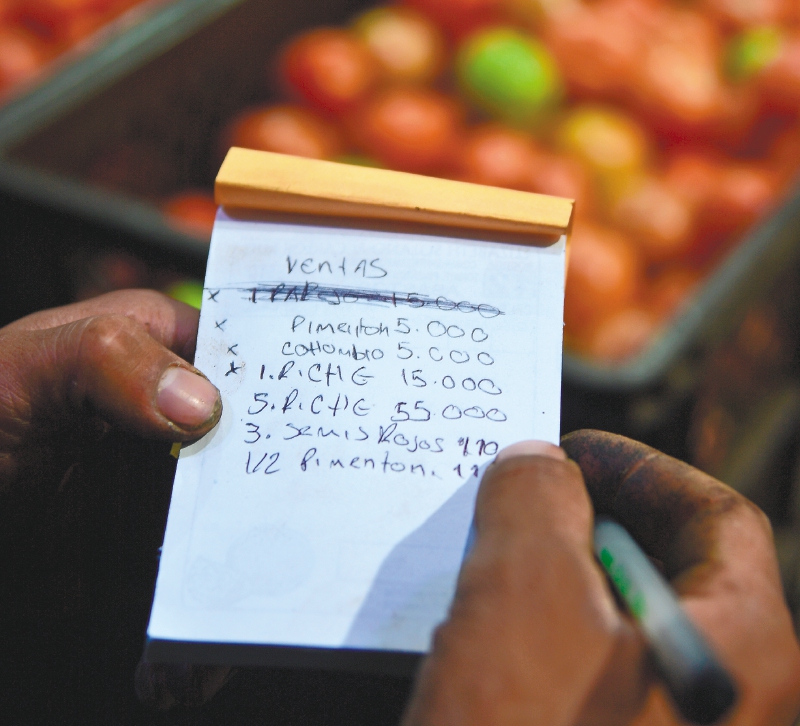 VENTAS
x 1. PAREJO 15.000
x Pimenton 5.000
x COHOMBRO 5.000
x 1. RICHIE 15.000
5. RICHIE 55.000
3. SEMIS ROJOS
1/2 Pimenton.